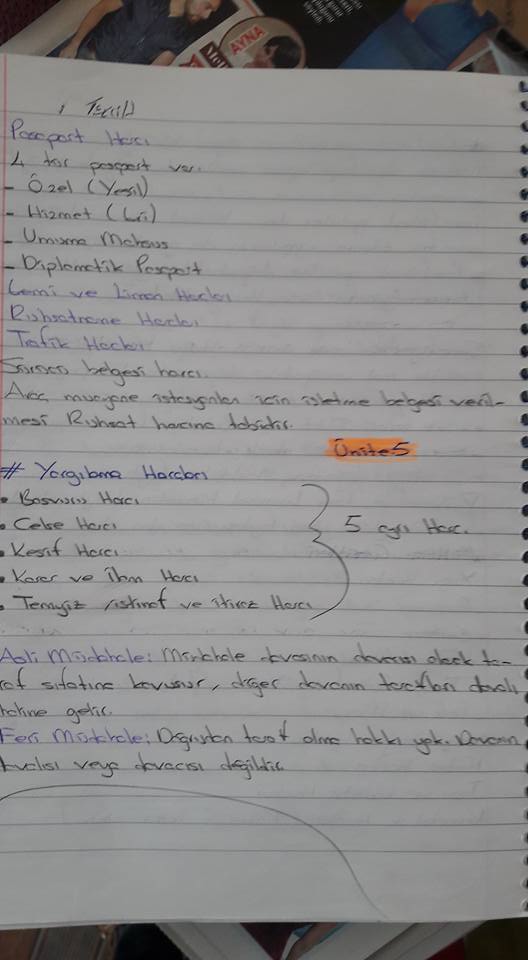 AYNA
Pasaport Harcı
4 tür pasaport var.
- Özel (Yeşil)
- Hizmet (Gri)
- Umuma Mahsus
- Diplomatik Pasaport
Gemi ve Liman Harcları
Ruhsatname Harcları
Trafik Harcları
Sürücü belgesi harcı.
Araç muayene istasyonları için işletme belgesi veril-
mesi Ruhsat harcına tabidir.
Ünite 5
# Yargılama Harcları
• Başvuru Harcı
• Celse Harcı
• Keşif Harcı
5 ayrı Harc.
• Karar ve İlam Harcı
• Temyiz, istinaf ve itiraz Harcı
Asli Müdahale: Müdahale davasının davacısı olarak ta-
raf sıfatına kavuşur, diğer davanın tarafları davalı
haline gelir.
Feri Müdahale: Doğrudan taraf olma hakkı yok. Davanın
davalısı veya davacısı değildir.